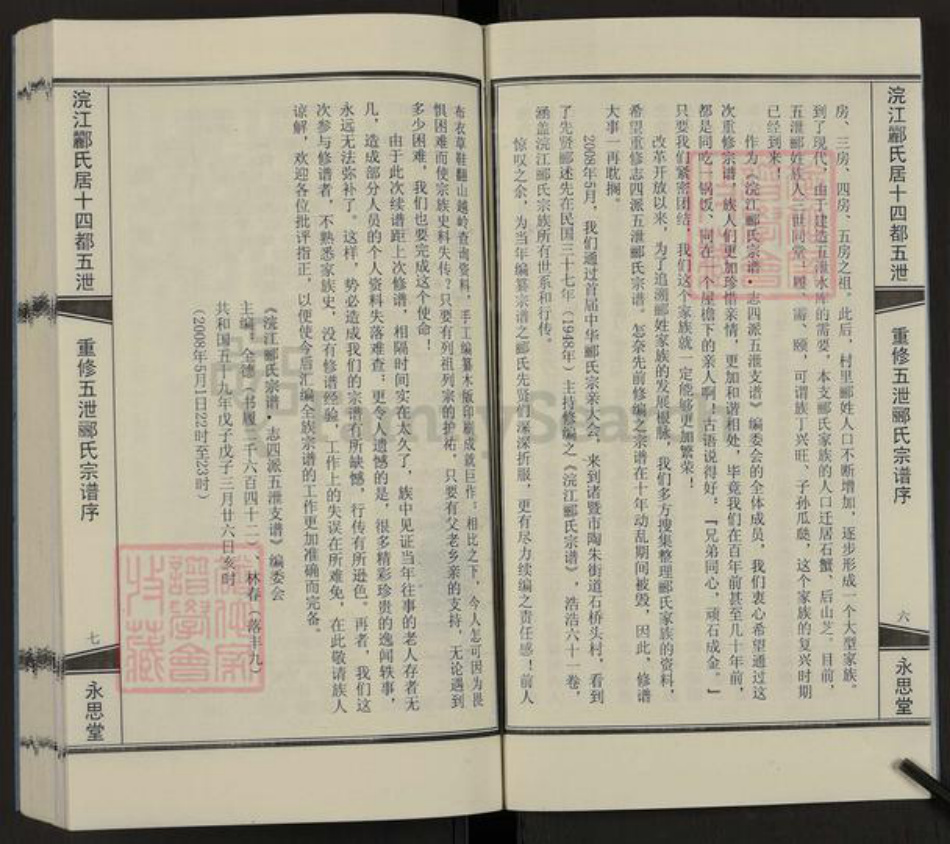 浣江酈氏居十四都五泄
重修五泄郦氏宗谱序
六
永思堂
房、三房、四房、五房之祖。此后，村里郦姓人口不断增加，逐步形成一个大型家族。
到了现代，由于建造五泄水库的需要，本支郦氏家族的人口迁居石蟹、后山芝。目前，
五泄郦姓族人三世同堂！履、需、颐，可谓族丁兴旺、子孙瓜瓞，这个家族的复兴时期
已经到来！
作为《浣江郦氏宗谱·志四派五泄支谱》编委会的全体成员，我们衷心希望通过这
次重修宗谱，族人们更加珍惜亲情，更加和谐相处，毕竟我们在百年前甚至几十年前，
都是同吃一锅饭、同在一个屋檐下的亲人啊！古语说得好：『兄弟同心，顽石成金。』
只要我们紧密团结，我们这个家族就一定能够更加繁荣！
改革开放以来，为了追溯郦姓家族的发展根脉，我们多方搜集整理郦氏家族的资料，
希望重修志四派五泄郦氏宗谱。怎奈先前修编之宗谱在十年动乱期间被毁，因此，修谱
大事一再耽搁。
2008年5月，我们通过首届中华郦氏宗亲大会，来到诸暨市陶朱街道石桥头村，看到
了先贤郦述先在民国三十七年（1948年）主持修编之《浣江郦氏宗谱》，浩浩六十一卷，
涵盖浣江郦氏宗族所有世系和行传。
惊叹之余，为当年编纂宗谱之郦氏先贤们深深折服，更有尽力续编之责任感！前人
布衣草鞋翻山越岭查询资料，手工编纂木版印刷成就巨作；相比之下，今人怎可因为畏
惧困难而使宗族史料失传？只要有列祖列宗的护佑，只要有父老乡亲的支持，无论遇到
多少困难，我们也要完成这个使命！
由于此次续谱距上次修谱，相隔时间实在太久了，族中见证当年往事的老人存者无
几，造成部分人员的个人资料失落难查；更令人遗憾的是，很多精彩珍贵的逸闻轶事，
永远无法弥补了。这样，势必造成我们的宗谱有所缺憾，行传有所逊色。再者，我们这
次参与修谱者，不熟悉家族史，没有修谱经验，工作上的失误在所难免，在此敬请族人
谅解，欢迎各位批评指正，以便使今后汇编全族宗谱的工作更加准确而完备。
《浣江郦氏宗谱·志四派五泄支谱》编委会
主编：全德（书履一千六百四十二）、林春（落丰九）
共和国五十九年戊子戊子三月廿六日亥时
（2008年5月1日22时至23时）
浣江酈氏居十四都五泄
重修五泄郦氏宗谱序
七
永思堂
FamilySearch